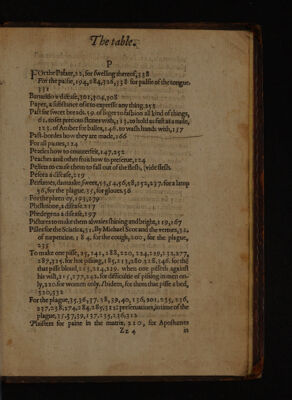 The table.
P
FOr the Palate, 12, for swelling thereof, 338
For the palsie, 194, 284, 326, 338 for palsie of the tongue.
332
a disease, 302, 304, 308
Paper, a substance of it to expresse any thing. 258
Past for sweet beads. 59. of sugar to fashion all kind of things,
61. to set precious stones with, 113. to hold as fast as a naile,
123. of Amber for balles, 146. to wash hands with, 157
Past-bordes how they are made, 166
For all paines, 124
Peaches how to counterfeit, 147, 252
Peaches and other fruit how to preserue, 124
to cause them to fall out of the flesh, vide flesh.
a disease, 219
Perfumes, damaske, sweet, 55, 54, 56, 58, 252, 257. for a lamp
56, for the plague. 35, for gloues. 56
For the 195, 279
a disease. 217
a disease, 197
Pictures to make them alwaies shining and bright, 119, 167
Pilles for the Sciatica, 31. By Michael Scot and the vertues, 32.
of turpentine. 184. for the cough, 200, for the plague,
235
To make one pisse, 25, 241, 288, 220, 224, 229, 232, 277,
287, 325. for hot pissing, 185, 213, 280, 328, 346. for thé
that pisse bloud, 213, 214, 229. when one pisseth against
his will, 215, 277, 242. for difficultie of pissing in women on-
ly, 220. for women only. Ibidem, for them that pisse a bed,
320, 332
For the plague, 35, 36, 37. 38, 39, 40, 136, 201, 235, 236,
237, 238, 274, 284, 285, 312: preseruatiues, in time of the
plague, 37, 37, 39, 137, 235, 236, 312
Plaisters for paine in the matrix, 210, for Apostumes
Zz 4
in